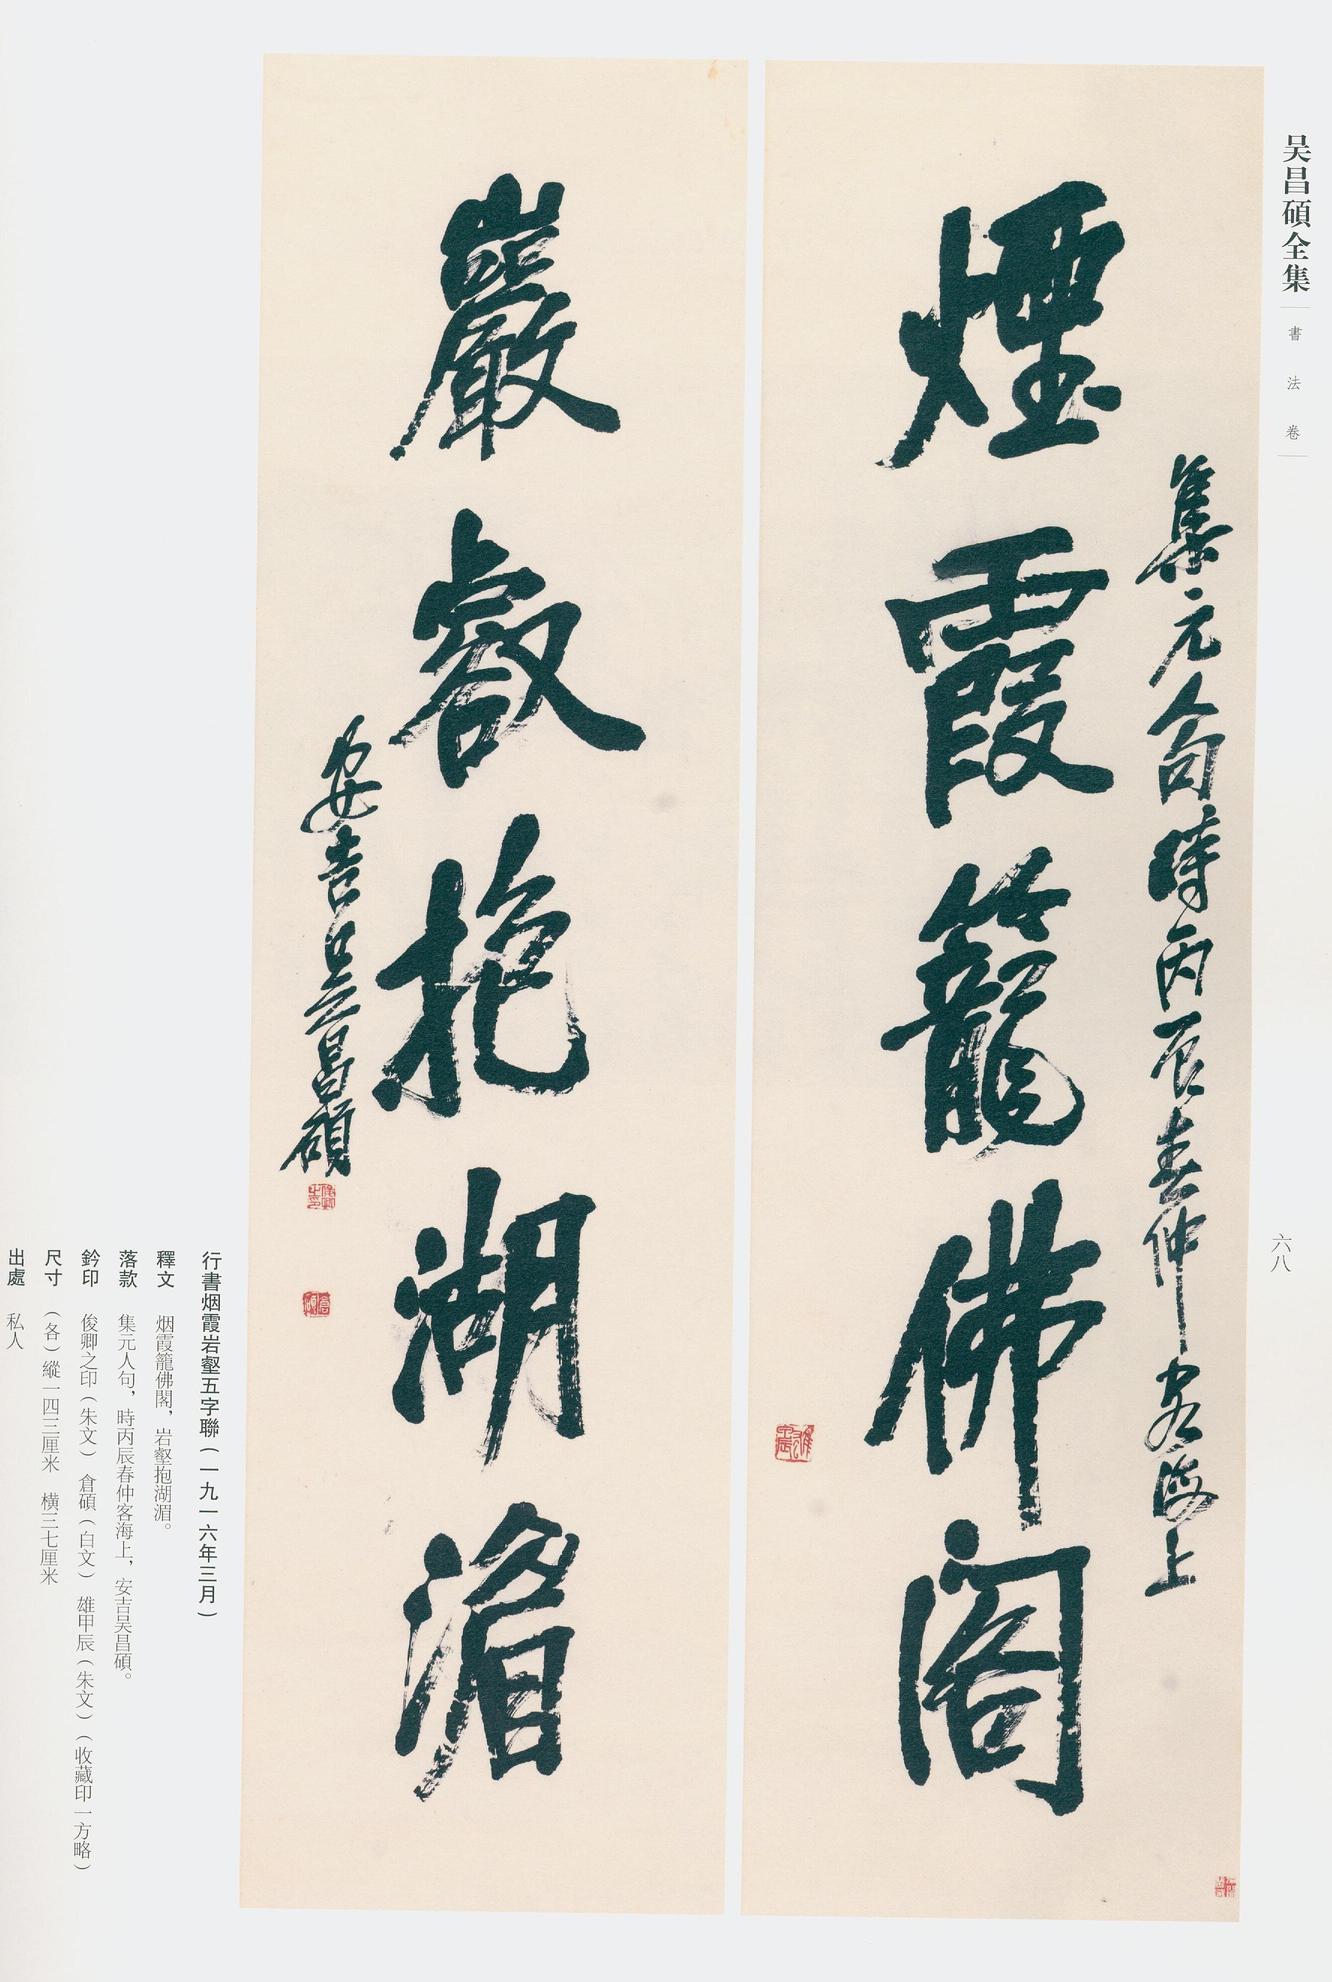 吴昌碩全集
書法卷
六八
集元人句時丙辰春仲客海上
煙霞籠佛閣
巖壑抱湖湄
安吉吴昌碩
行書烟霞岩壑五字聯（一九一六年三月）
釋文　烟霞籠佛閣，岩壑抱湖湄。
落款　集元人句，時丙辰春仲客海上，安吉吴昌碩。
鈐印　俊卿之印（朱文）　倉碩（白文）　雄甲辰（朱文）（收藏印一方略）
尺寸　（各）縱一四三厘米　横三七厘米
出處　私人